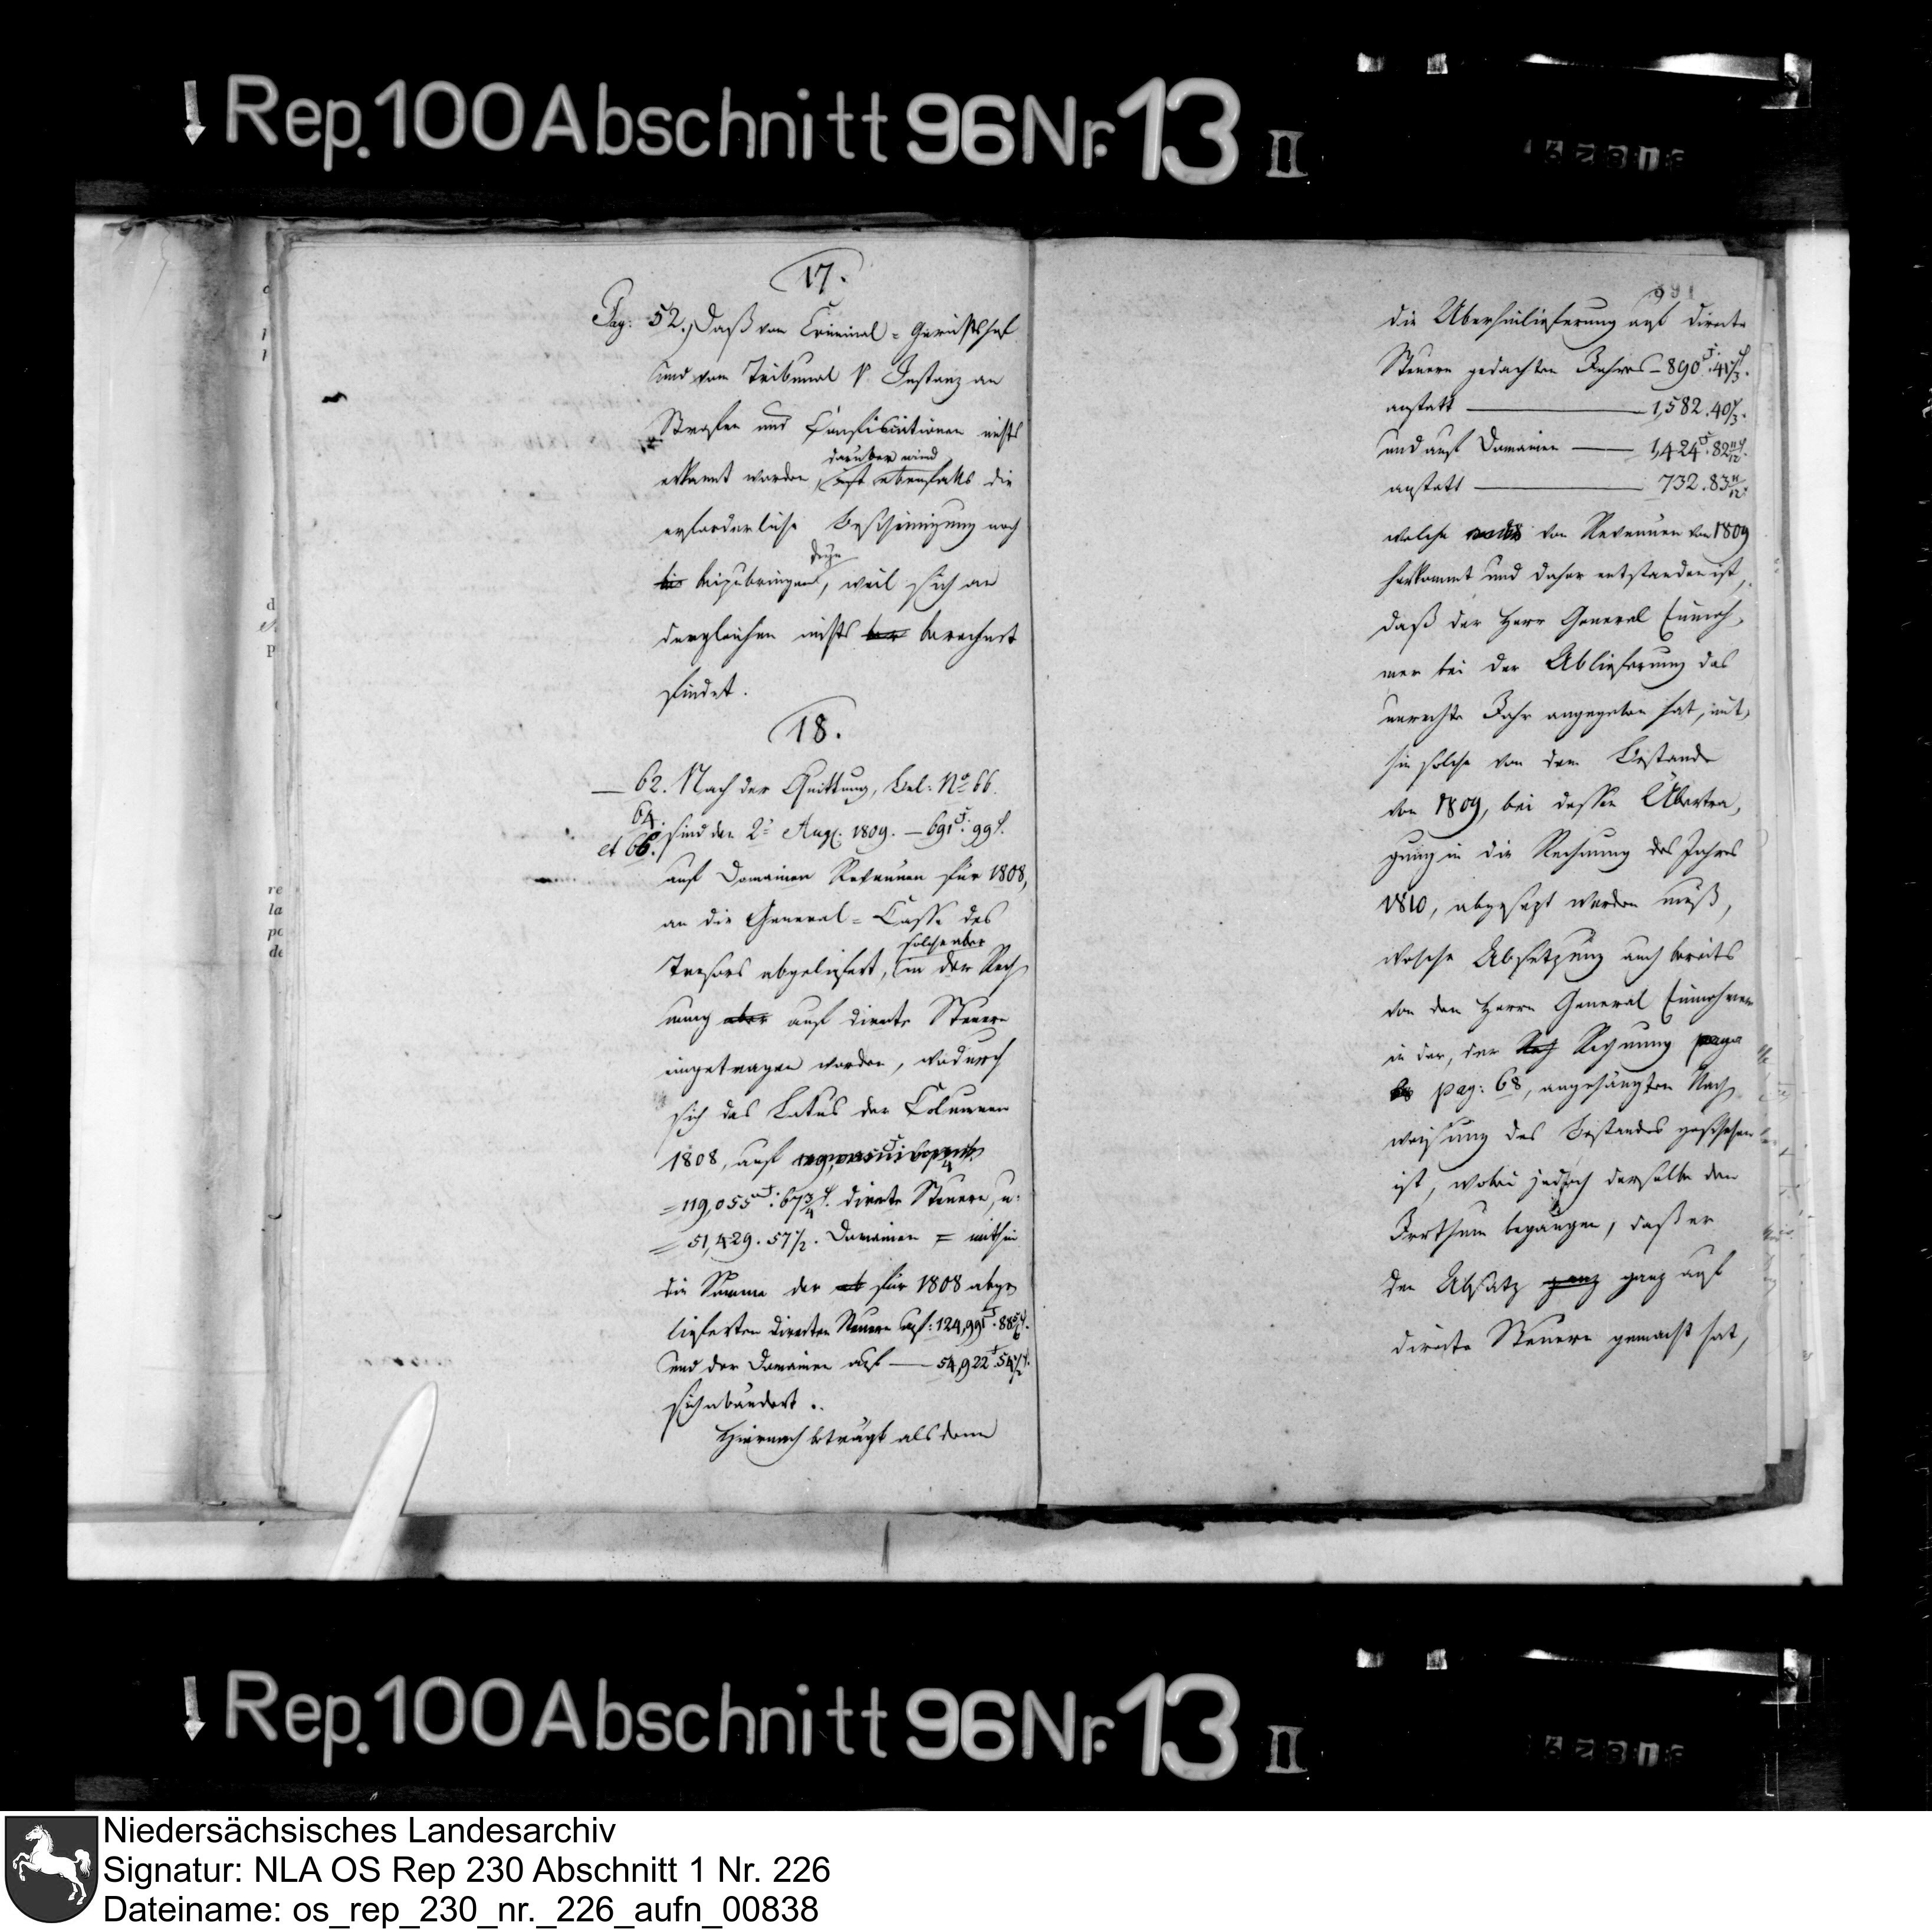 Rep. 100 Abschnitt 96 Nr. 13 II
17.
Pag: 52. Daß vom Criminal-Gerichtshof
und vom Tribunal I. Instanz an
Strafen und Confiscationen nichts
darüber wird
erkannt worden, ist ebenfalls die
erforderliche Bescheinigung noch
beizubringen, weil sich an
dergleichen nichts berechnet
findet.
18.
— 62. Nach der Quittung, Bel: No 66.
64.
et 66. sind den 2t Aug. 1809. — 691 f. 99
auf Domainen Revenüen für 1808,
an die General-Casse des
solche aber
Tresors abgeliefert, in der Rech
nung aber auf directe Steuern
eingetragen worden, wodurch
sich das Latus der Columnen
1808, auf
= 119,055 f. 67 3/4 directe Steuern, u.
= 51,429. 57 1/2. Domainen = mithin
die Summe der für 1808 abge
lieferten directen Steuern auf: 124,991 f. 88 5/6
und der Domainen auf — 54,922 f. 54 1/2
sich abändert.
Hiernach beträgt alsdann
die Überlieferung auf directe
Steuern gedachten Jahres — 890 f. 41 1/3.
anstatt — 1,582. 40 1/3.
und auf Domainen — 1,424 f. 82 11/12.
anstatt — 732. 83 11/12.
welche von Revenüen von 1809
herkommt und daher entstanden ist,
daß der Herr General Einneh-
mer bei der Ablieferung das
unrechte Jahr angegeben hat, mit-
hin solche von dem Bestande
von 1809, bei dessen Übertra-
gung in die Rechnung des Jahres
1810, abgesezt werden muß,
welche Absetzung auch bereits
von dem Herrn General Einnehmer
in der, der Rech Rechnung
pag: 68, angehängten Nach
weisung des Bestandes geschehen
ist, wobei jedoch derselbe den
Irrthum begangen, daß er
den Absatz ganz ganz auf
directe Steuern gemacht hat,
Rep. 100 Abschnitt 96 Nr. 13 II
Niedersächsisches Landesarchiv
Signatur: NLA OS Rep 230 Abschnitt 1 Nr. 226
Dateiname: os_rep_230_nr._226_aufn_00838